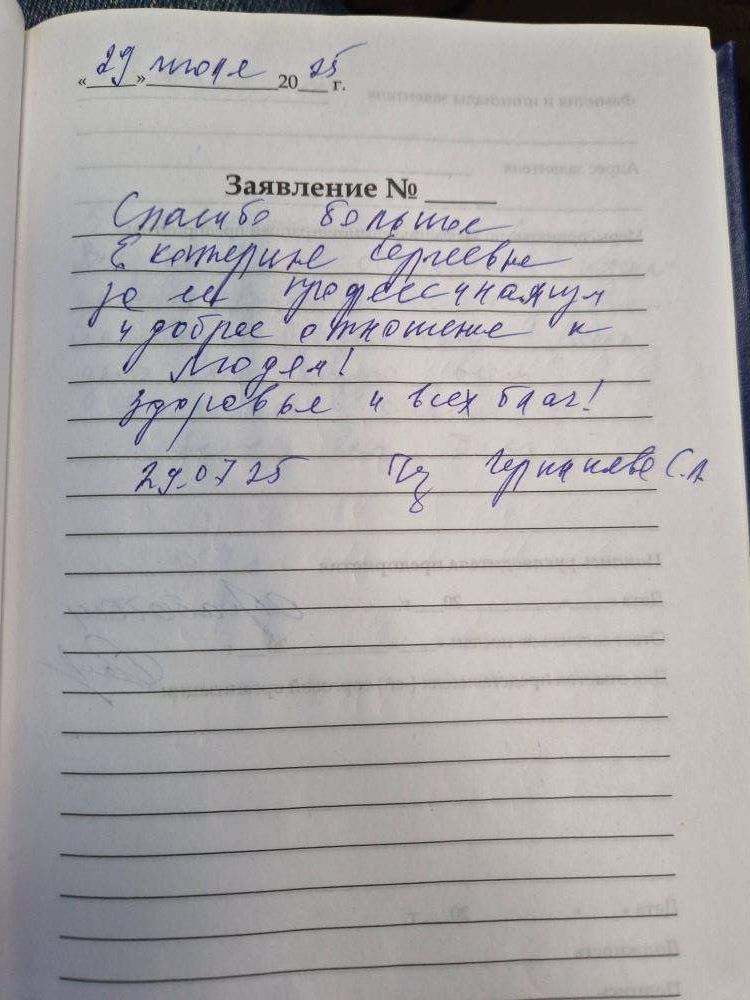 «29» июля 2025 г.
Заявление № ____
Спасибо большое
Екатерине Сергеевне
за ее профессинализм
и доброе отношение к
людям!
Здоровья и всех благ!
29.07 25 С.А.